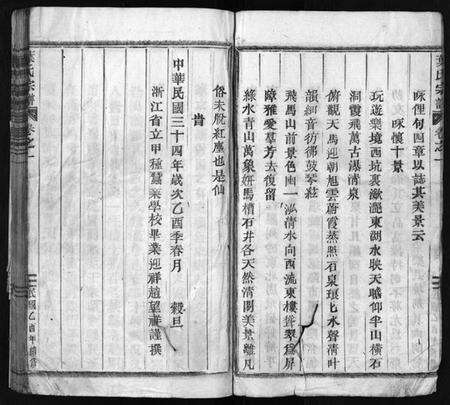 葉氏宗譜
卷之一
咏俚句四章以誌其美景云
咏懷十景
玩遊樂境西坑裏瀲灔東湖水映天曦仰半山橫石
洞霞飛萬古瀑清泉
俯觀天馬迎朝旭雲蔚霞蒸照石泉環匕水聲清叶
韻細音彷彿鼓琴莊
飛馬山前景色幽一泓清水向西流東樓聳翠爲屏
障雅愛羣芳去復留
綠水青山萬象妍馬槽石井各天然清閑美景離凡
俗未脫紅塵也是仙
旹
中華民國三十四年歲次乙酉季春月 穀旦
浙江省立甲種蠶桑學校畢業迎祥趙望祥謹撰
葉氏宗譜
卷之一
民國乙酉年續修